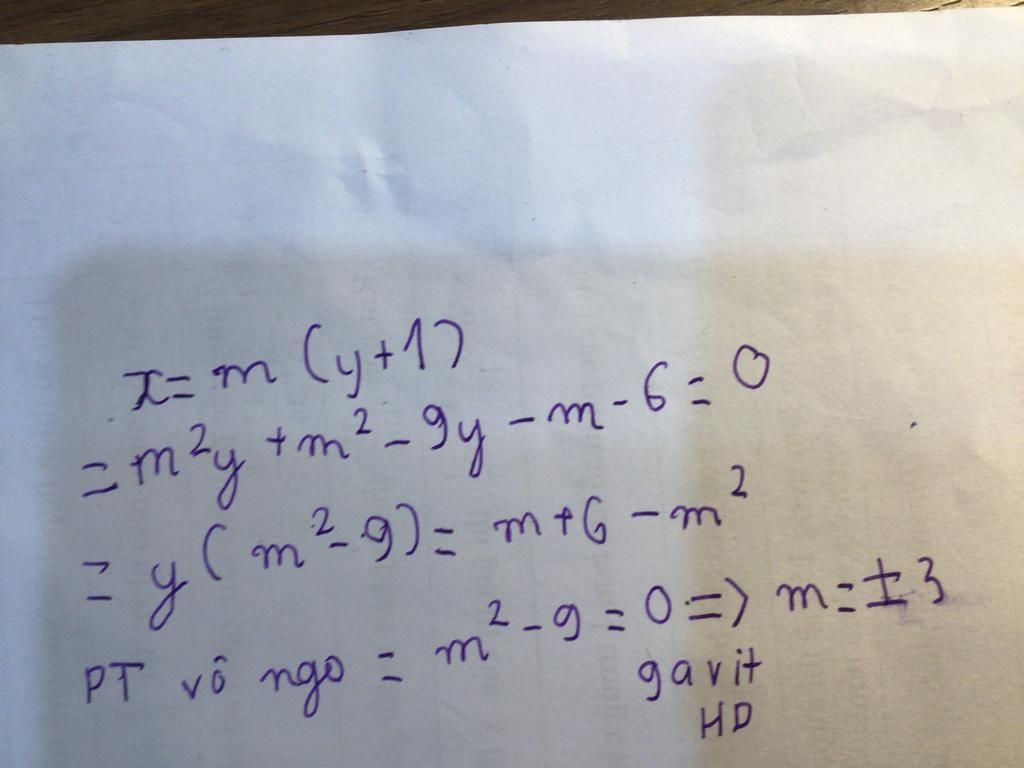 x = m (y+1)
= m²y + m² - 9y - m - 6 = 0
= y (m² - 9) = m + 6 - m²
PT vô ngo = m² - 9 = 0 => m = ± 3
gavit
HD